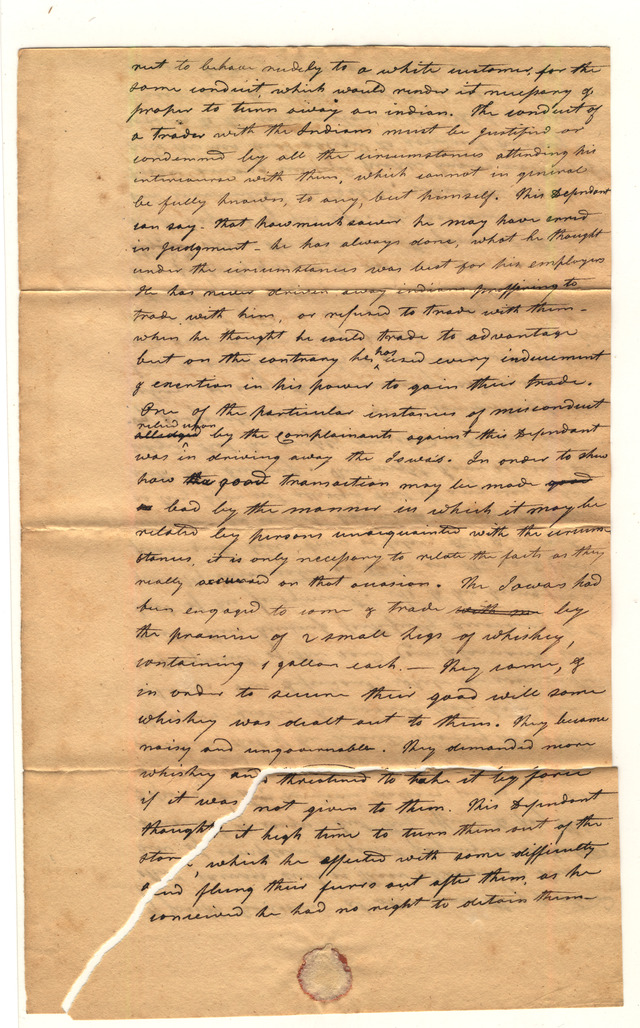 not to behave rudely to a white customer, for the
same conduit, which would render it necessary &
proper to turn away an indian. The conduct of
a trader with the Indians must be justified or
condemned by all the circumstances attending his
intercourse with them, which cannot in general
be fully known, to any, but himself. This Defendant
can say. that howmuchsoever he may have erred
in judgment - he has always done, what he thought
under the circumstances was best for his employers
He has never driven away indians proffering to
trade with him, or refused to trade with them -
when he thought he could trade to advantage
but on the contrary he has used every inducement
& exertion in his power to gain their trade.
One of the particular instances of misconduct
relied upon
alledged by the complainants against this Defendant
was in driving away the Iowa's. In order to show
how the good transaction may be made good
bad by the manner in which it may be
related by persons unacquainted with the circum
stances, it is only necessary to relate the facts as they
really occurred on that occasion. The Iowas had
been engaged to come & trade with me by
the promise of 2 small kegs of whiskey,
containing 1 gallon each. — They came, &
in order to secure their good will some
whiskey was dealt out to them. They became
noisy and ungovernable. They demanded more
whiskey and threatened to take it by force
if it was not given to them. This Defendant
thought it high time to turn them out of the
store, which he affected with some difficulty
and flung their furrs out after them, as he
conceived he had no right to detain them -